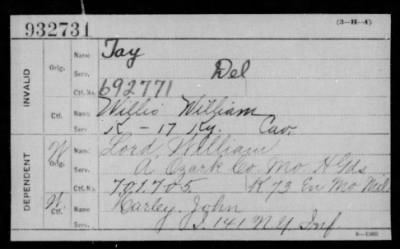 932731
(3-H-4)
INVALID
Orig.
Name
Tay
Serv.
Del
Ctf. No.
692771
Ctf.
Name
Willis William
Serv.
K-17 Ky. Cav
DEPENDENT
W
Orig.
Name
Lord, William
Serv.
A Ozark Co. Mo. H Gds
Ctf. No.
701705
K 73 En Mo Mil
W.
Ctf.
Name
Harley John
Serv.
I. 141 N Y Inf